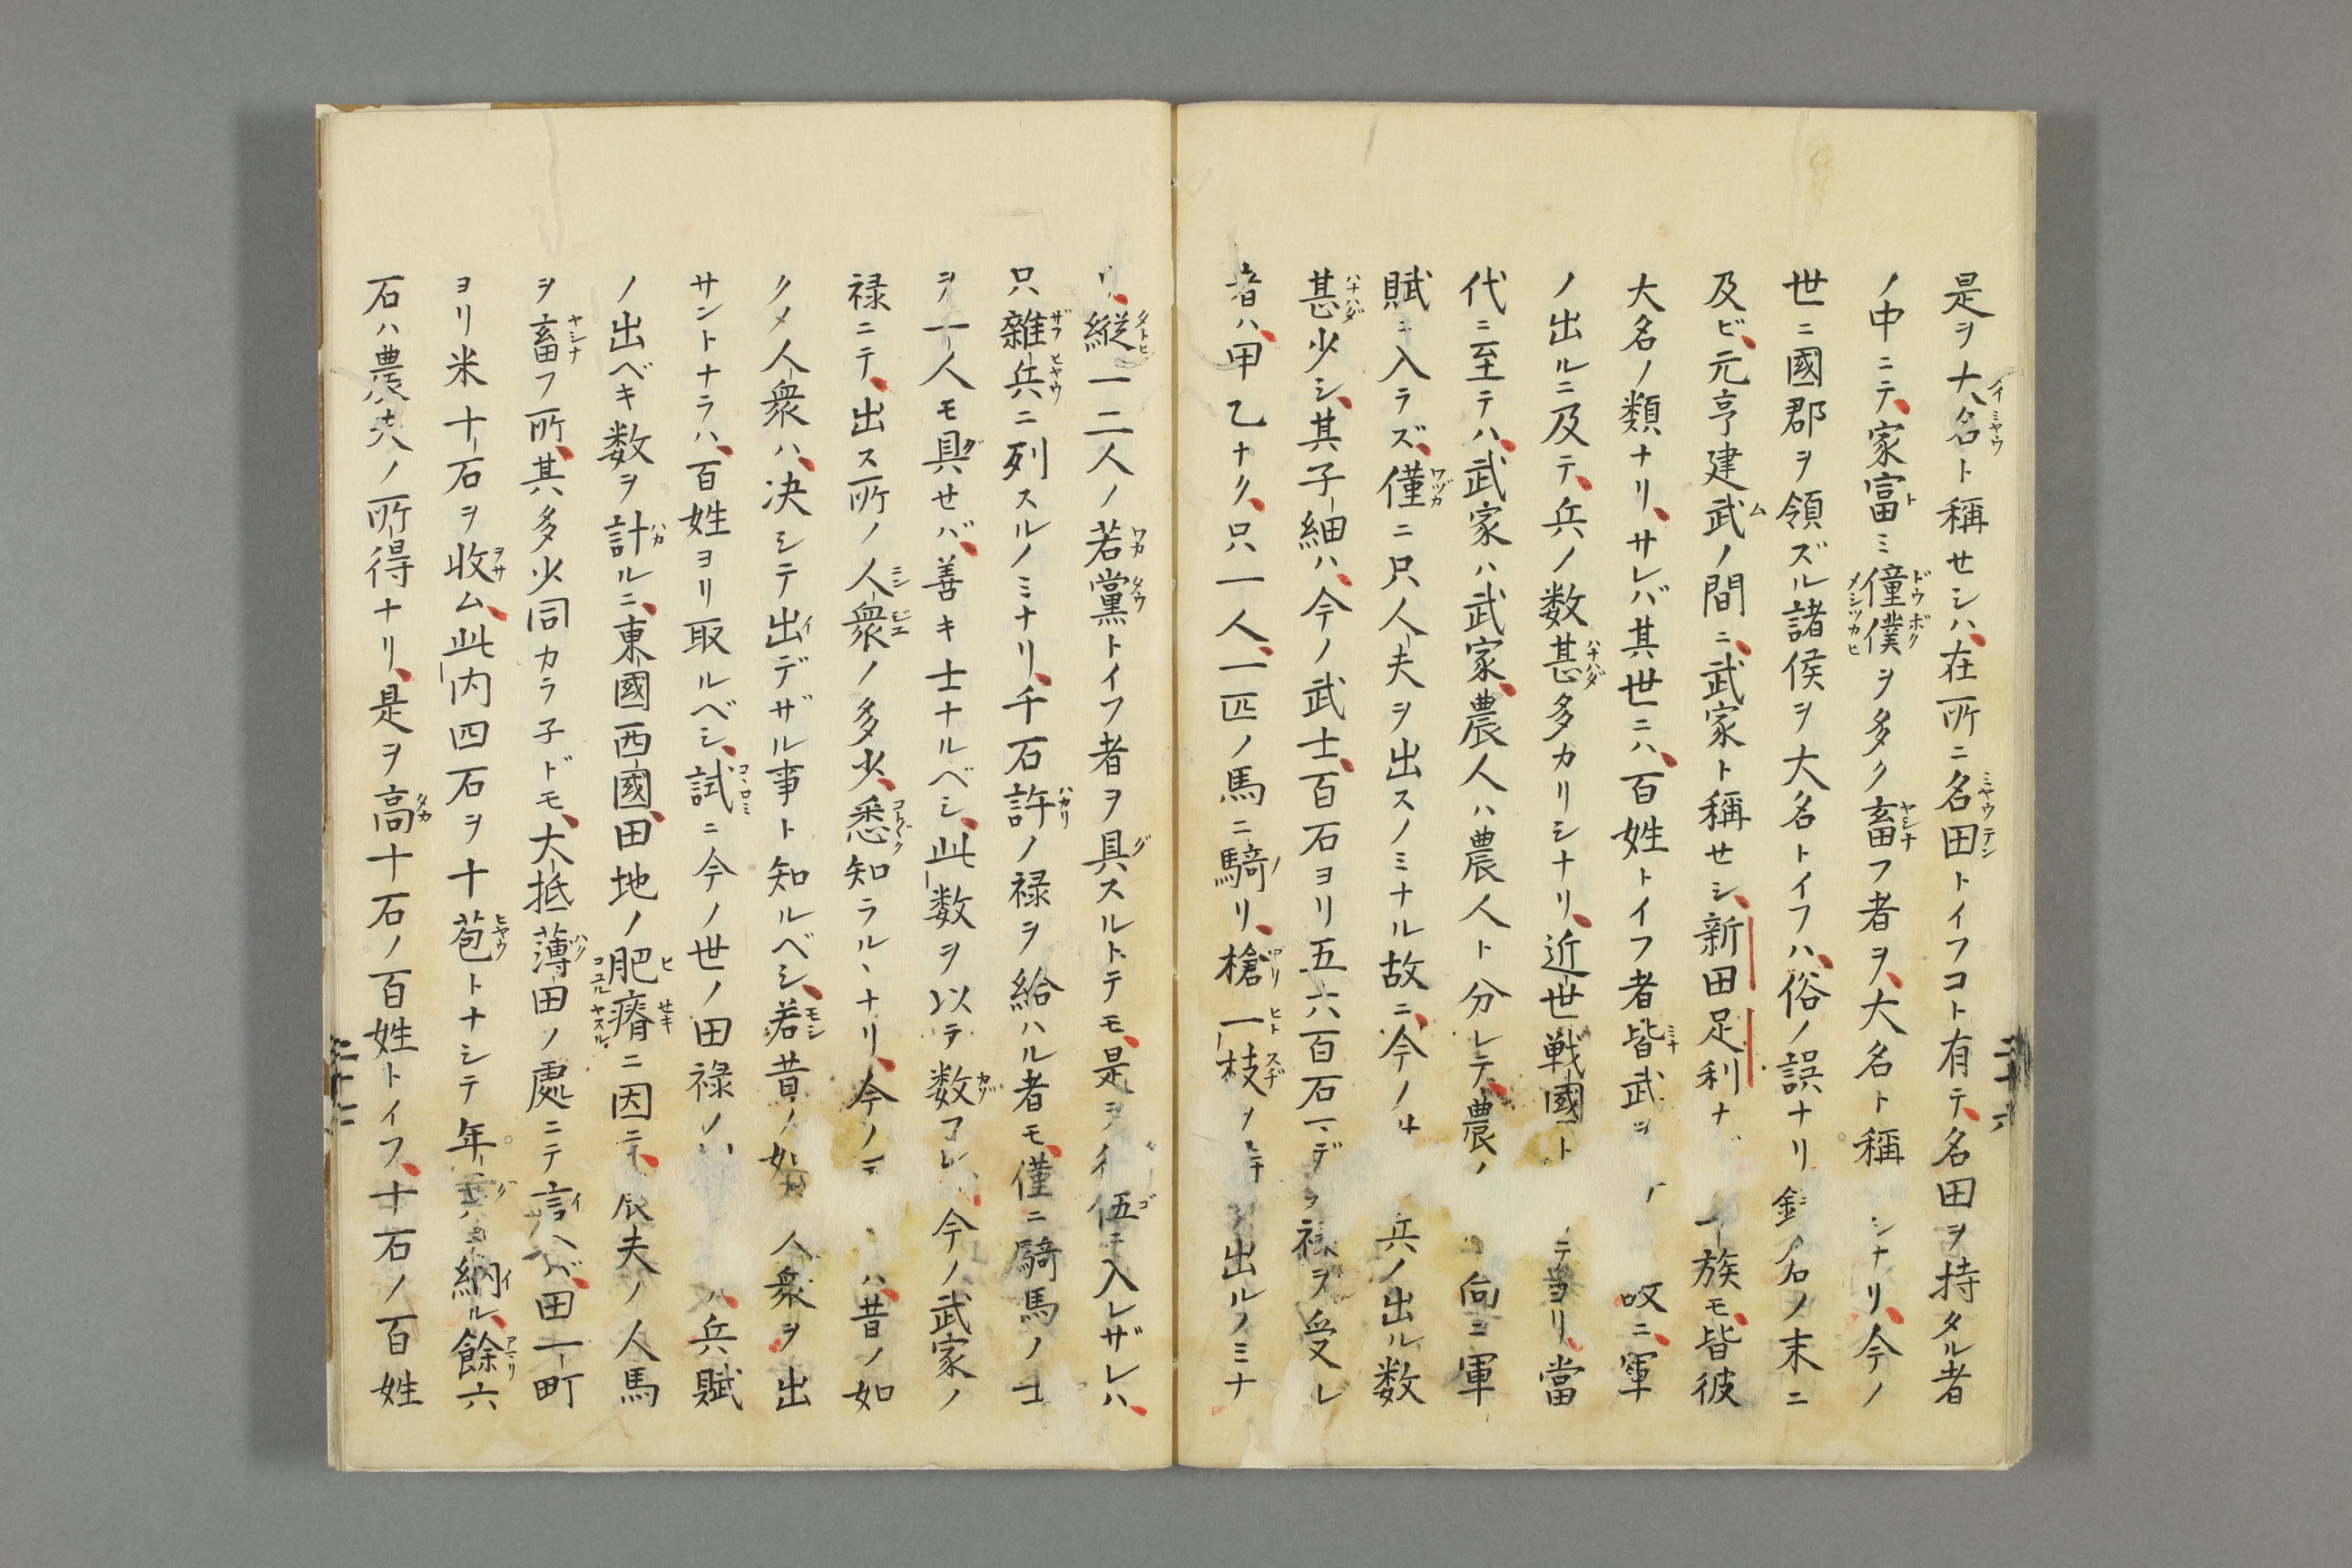 是ヲ大名ト稱セシハ、在所ニ名田トイフコト有テ、名田ヲ持タル者
ノ中ニテ、家富ミ僮僕ヲ多ク畜フ者ヲ、大名ト稱シナリ、今ノ
世ニ國郡ヲ領ズル諸侯ヲ大名トイフハ、俗ノ誤ナリ名ノ末ニ
及ビ、元亨建武ノ間ニ、武家ト稱セシ、新田足利ナ一族モ、皆彼
大名ノ類ナリ、サレバ其世ニハ、百姓トイフ者皆武ニ、軍
ノ出ルニ及テ、兵ノ数甚多カリシナリ、近世戦國トテヨリ、當
代ニ至テハ、武家ハ武家、農人ハ農人ト分レテ、農ノ向ニ軍
賦ニ入ラズ、僅ニ只人夫ヲ出スノミナル故ニ、今ノ兵ノ出ル数
甚少シ、其子細ハ、今ノ武士、百石ヨリ五六百石マデヲ禄ヲ受レ
者ハ、甲乙ナク、只一人、一匹ノ馬ニ騎リ、槍一枝ヲ出ルノミナ
リ、縦一二人ノ若黨トイフ者ヲ具スルトテモ、是ヲ伍ニ入レザレハ、
只雜兵ニ列スルノミナリ、千石許ノ禄ヲ給ハル者モ、僅ニ騎馬ノ士
ヲ一人モ具せバ、善キ士ナルベシ、此数ヲ以テ数フレ、今ノ武家ノ
禄ニテ、出ス所ノ人衆ノ多少、悉知ラル、ナリ、今ノハ、昔ノ如
クメ人衆ハ、决シテ出デザル事ト知ルベシ、若昔ノ如人衆ヲ出
サントナラハ、百姓ヨリ取ルベシ、試ニ今ノ世ノ田禄ノハ、兵賦
ノ出ベキ数ヲ計ルニ、東國西國、田地ノ肥瘠ニ因テ、夫ノ人馬
ヲ畜フ所、其多少同カラ子ドモ、大抵薄田ノ處ニテ言ヘバ、田一町
ヨリ米十石ヲ收ム、此内四石ヲ十苞トナシテ年貢納ル、餘六
石ハ農夫ノ所得ナリ、是ヲ高十石ノ百姓トイフ、十石ノ百姓